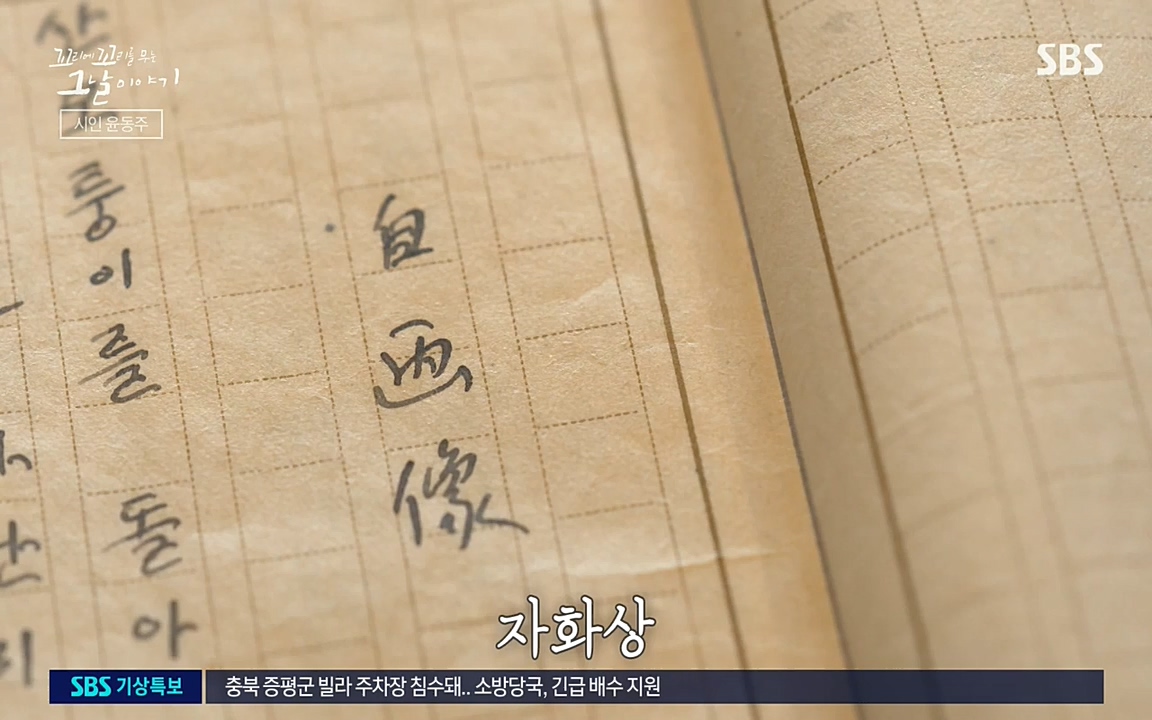 꼬리에 꼬리를 무는
그날 이야기
시인 윤동주
SBS
自画像
산모퉁이를 돌아
자화상
SBS 기상특보
충북 증평군 빌라 주차장 침수돼.. 소방당국, 긴급 배수 지원